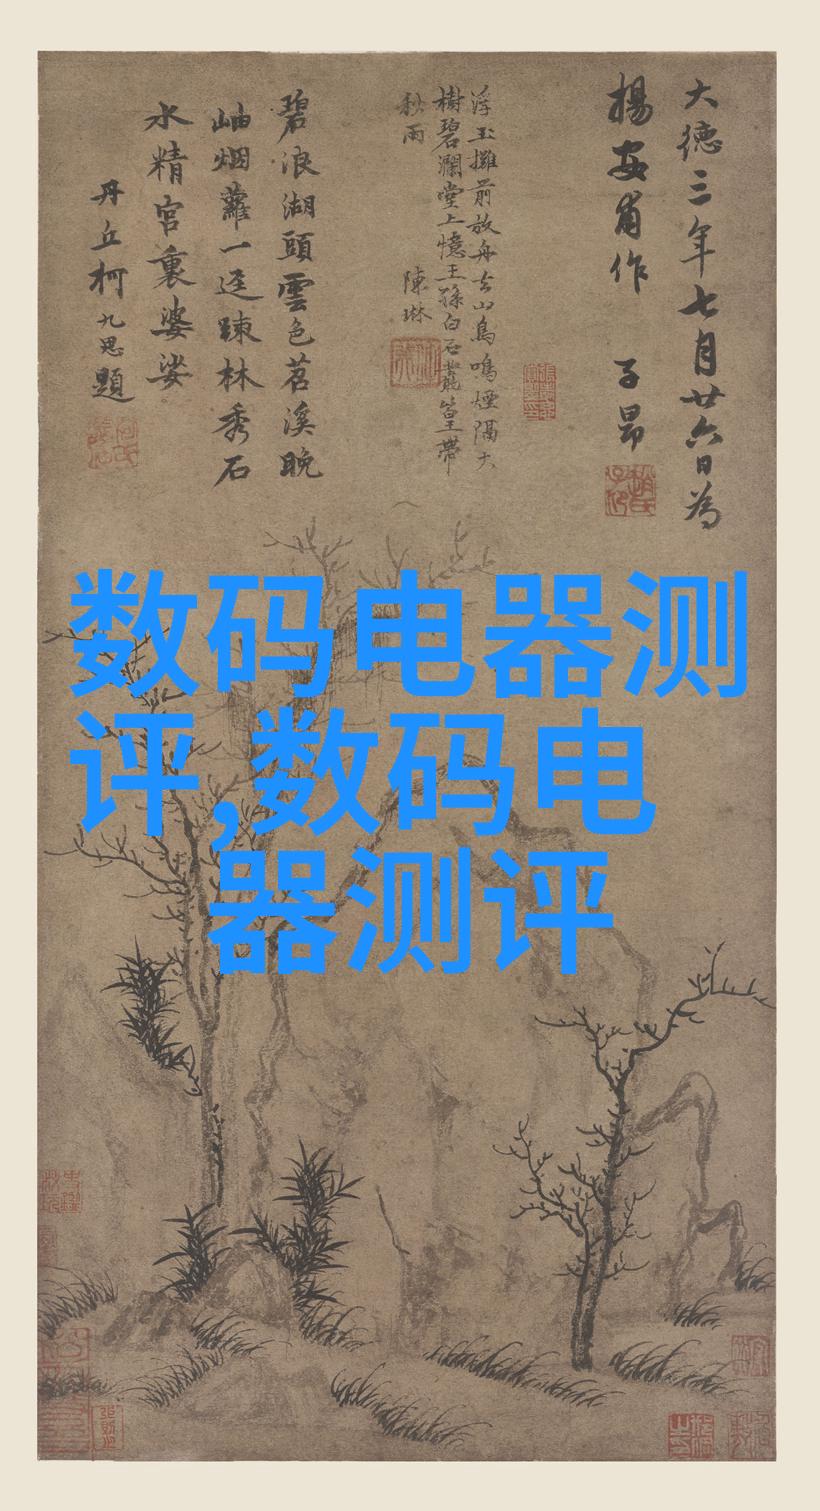 大德三年七月廿六日為
楊安甫作 子昂
浮玉攤前放舟去山鳥鳴煙隔大
樹碧瀾堂上憶王孫白石叢篁帶
秋雨 陳琳
碧浪湖頭雲色苕溪晚
岫烟蘿一逕踈林秀石
水精宮裏婆娑
丹丘柯九思題
数码电器测
评,数码电
器测评